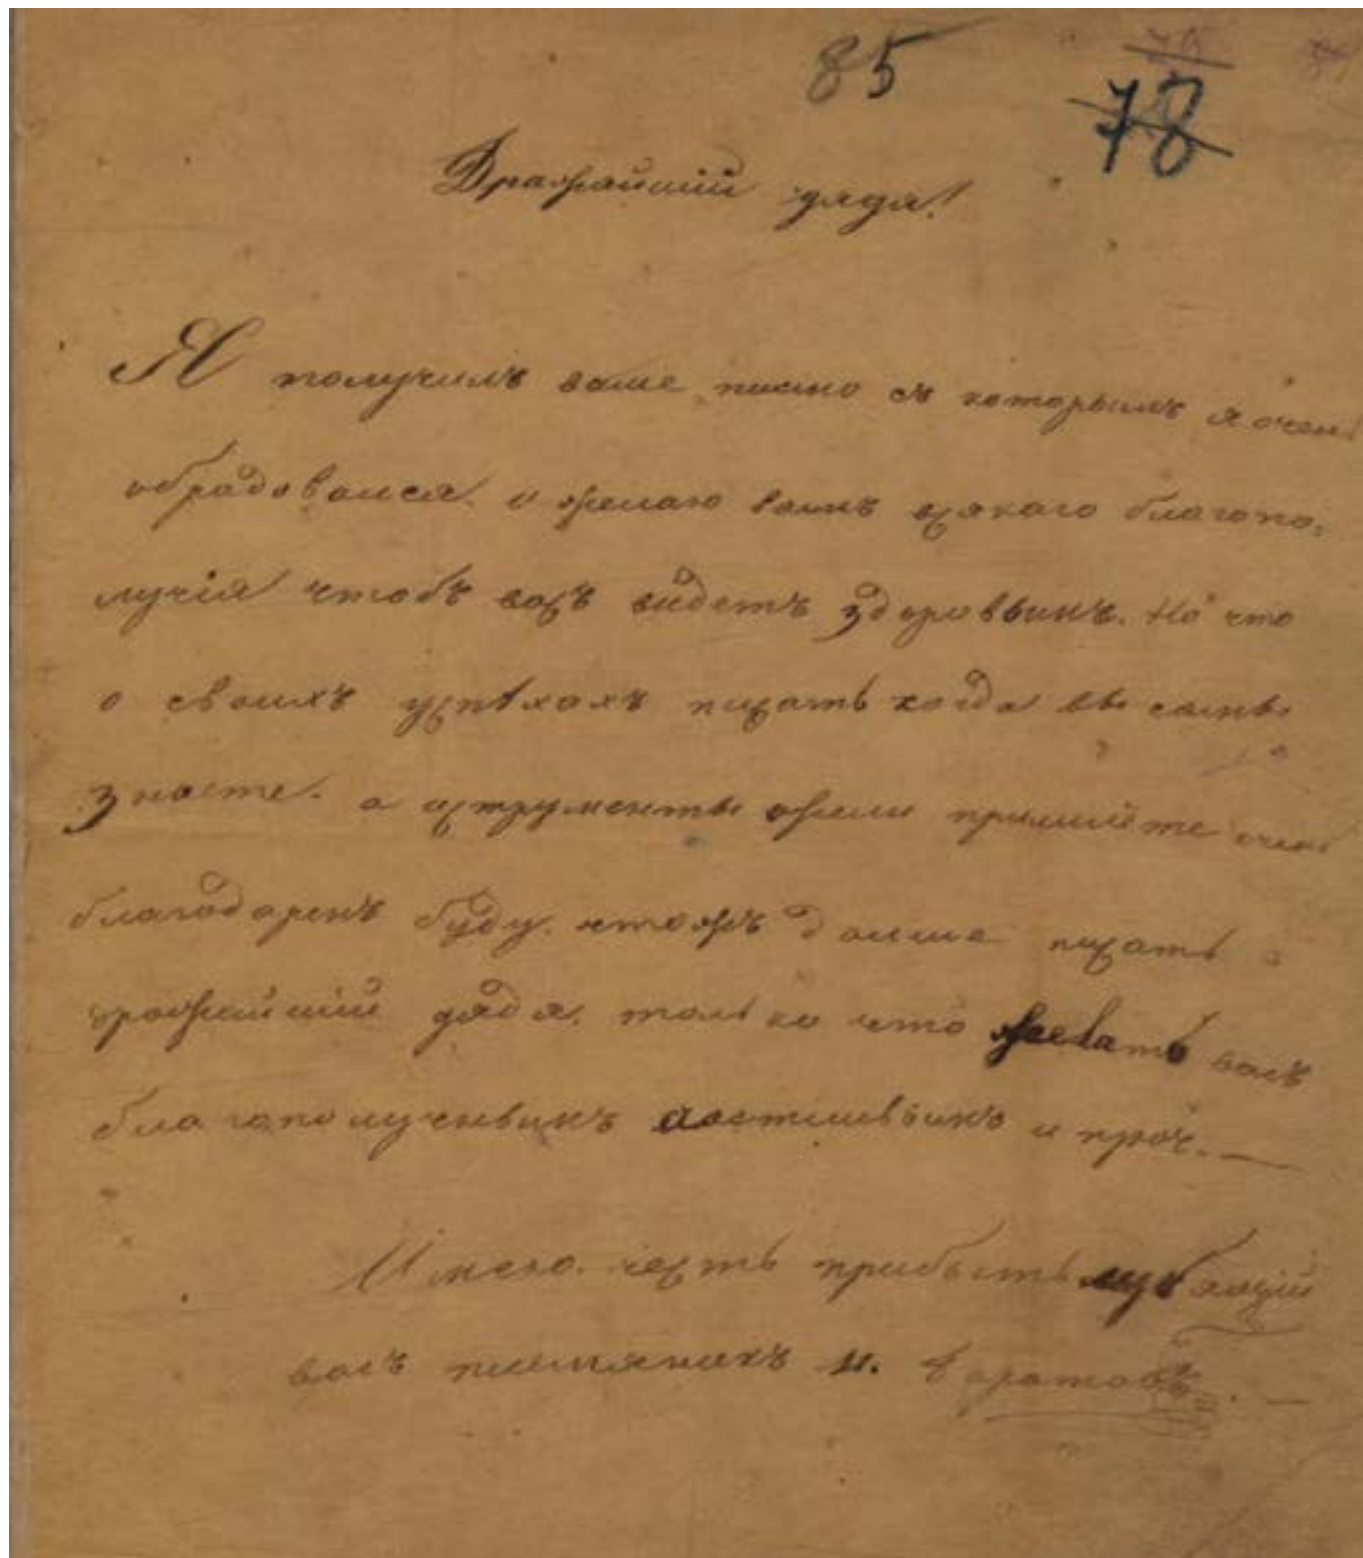 85
78
Дражайшій дядя!
Я получилъ ваше писмо съ которымъ я очень
обрадовался и желаю вамъ всякаго благопо-
лучія чтобъ васъ видетъ здоровымъ. Но что
о своихъ успѣхахъ писать когда вы самы
знаете. а иструменты ежели пришлйте очень
благодаренъ буду. чтожъ далше писать
дражайшій дядя. только что желать васъ
благополучнымъ и проч.
Имею честь прибыть любящій
васъ племяникъ И.